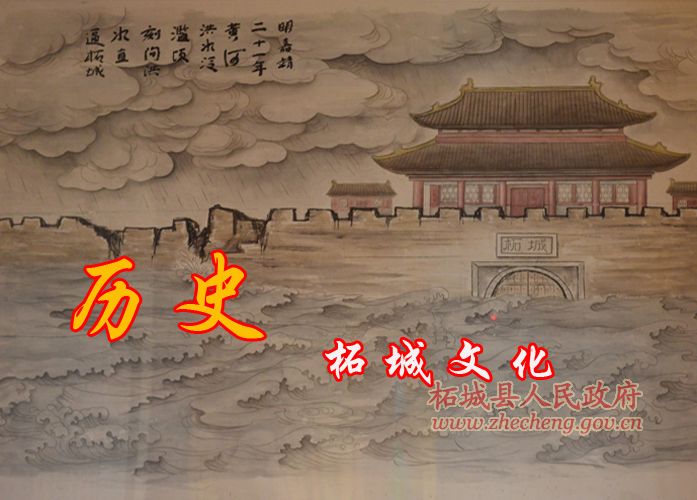 明嘉靖
二十一年
黄河
洪水泛
滥顷
刻间洪
水直
逼柘城
柘城
历史
柘城文化
柘城县人民政府
www.zhecheng.gov.cn